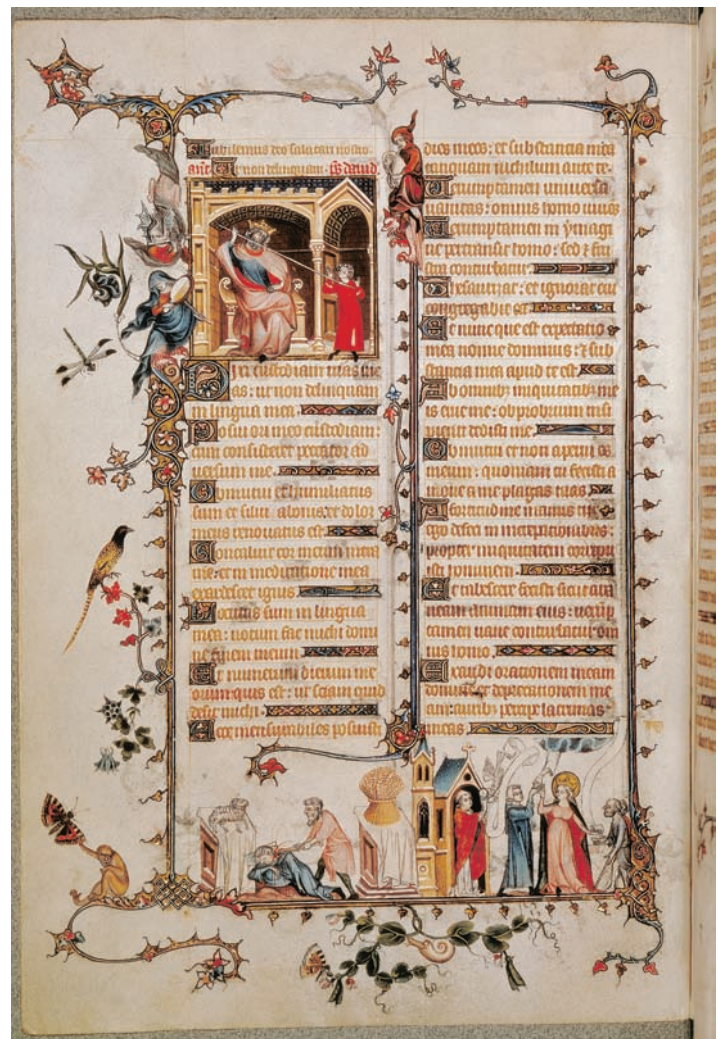 Iubilemus deo salutari nostro.
añ Ut non delinquam. ps david
Dixi custodiam vias me
as: ut non delinquam
in lingua mea.
Posui ori meo custodiam
cum consisteret peccator ad
versum me.
Obmutui et humiliatus
sum et silui a bonis: et dolor
meus renovatus est.
Concaluit cor meum intra
me: et in meditatione mea
exardescet ignis
Locutus sum in lingua
mea: notum fac michi domi
ne finem meum
Et numerum dierum me
orum quis est: ut sciam quid
desit michi.
Ecce mensurabiles posuisti
dies meos: et substancia mea
tanquam nichilum ante te.
Verumptamen universa
vanitas: omnis homo vivens
Verumptamen in ymagi
ne pertransit homo: sed et frus
tra conturbatur.
Thesaurizat: et ignorat cui
congregabit ea
Et nunc que est expectatio
mea nonne dominus: et sub
stancia mea apud te est.
Ab omnibus iniquitatibus me
is erue me: obprobrium insi
pienti dedisti me.
Obmutui et non aperui os
meum: quoniam tu fecisti a
move a me plagas tuas
A fortitudine manus tue
ego defeci in increpationibus:
propter iniquitatem corripu
isti hominem.
Et tabescere fecisti sicut ara
neam animam eius: verup
tamen vane conturbatur om
nis homo.
Exaudi orationem meam
domine et deprecationem me
am: auribus percipe lacrimas
meas.